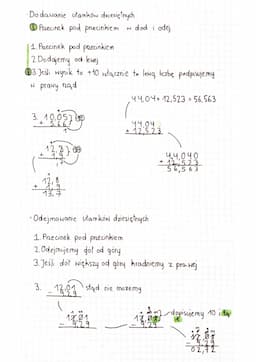 · Dodawanie ułamków dziesiętnych
① Przecinek pod przecinkiem w dod i odej
1. Przecinek pod przecinkiem
2. Dodajemy od lewej
3. Jeśli wynik to +10 włącznie to lewą liczbę podpisujemy
w prawy rząd
44,04 + 12,523 = 56,563
3. 10,057
44,04
+ 12,523
12,8
44,040
+ 12,523
56,563
12,8
13,7
· Odejmowanie ułamków dziesiętnych
1. Przecinek pod przecinkiem
2. Odejmujemy dół od góry
3. Jeśli dół większy od góry kradniemy z prawej
3. 12,01 stąd nie możemy
- 9,29
12,01
- 9,29
dopisujemy 10
- 9,29
- 9,29
02,72